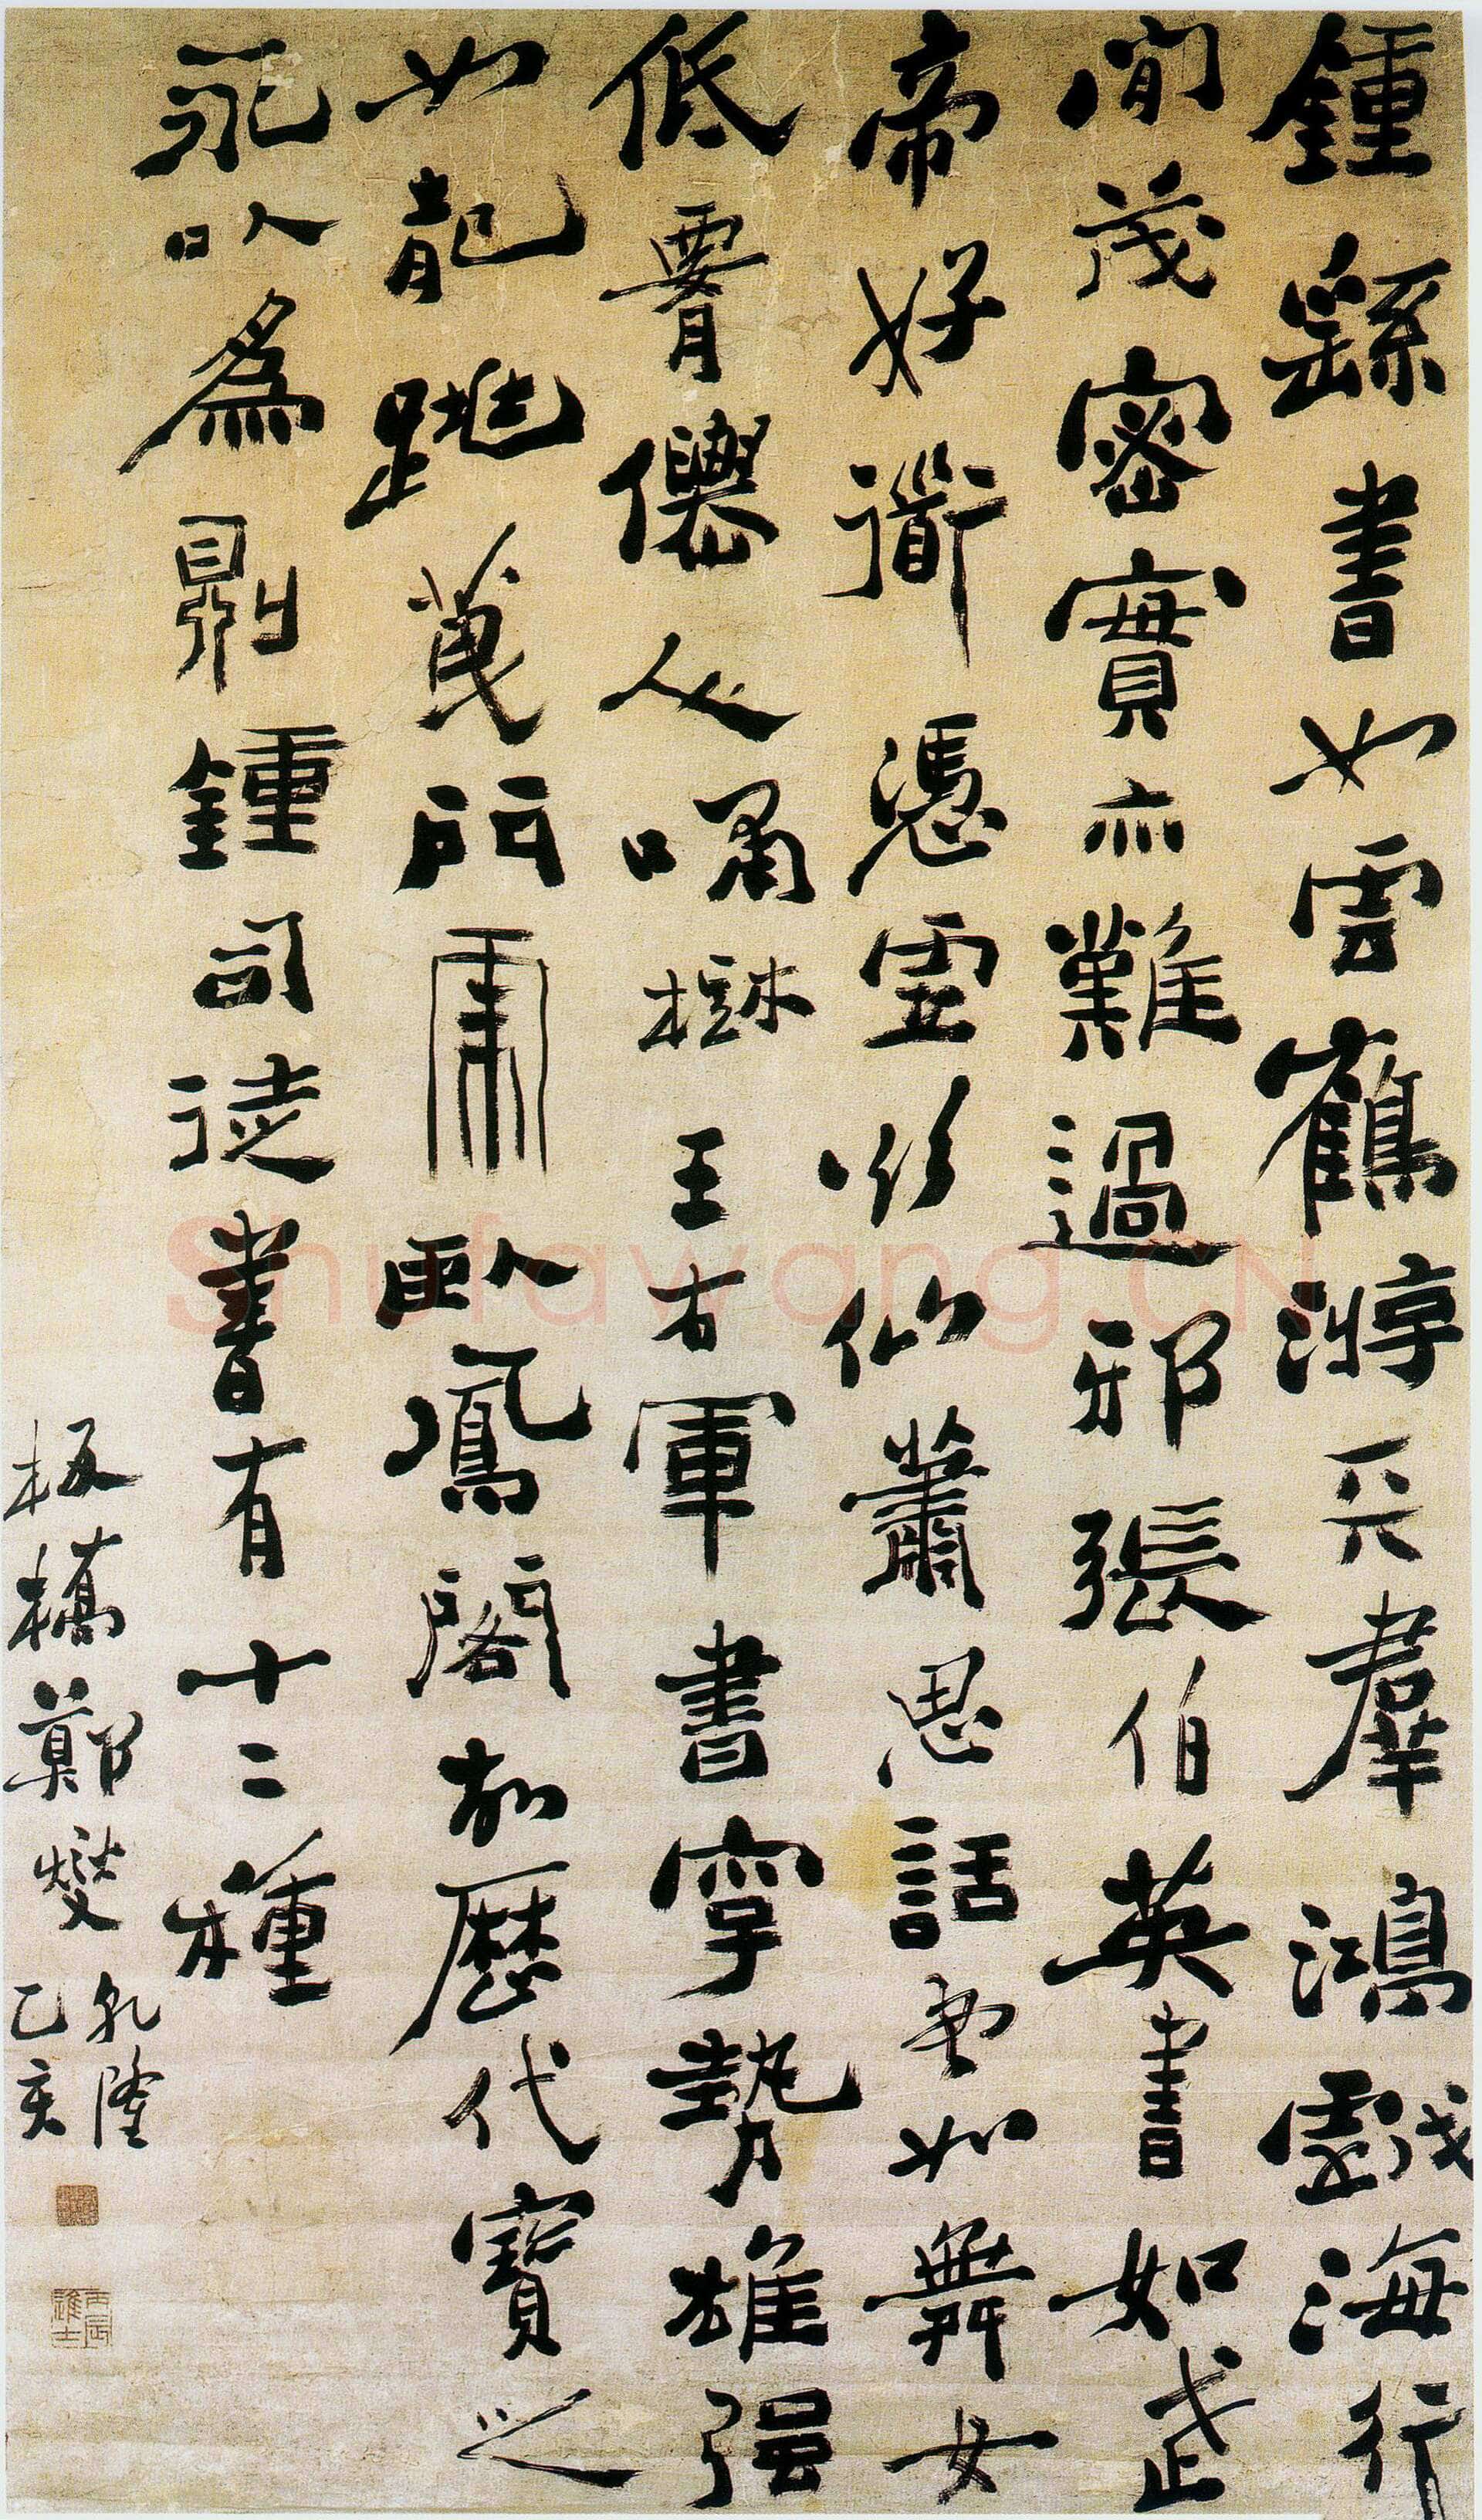 鍾繇書如雲鶴游天羣鴻戲海行
間茂密實亦難過邪張伯英書如武
帝好道憑虛欲仙蕭思話書如舞女
低腰僊人嘯樹王右軍書字勢雄强
如龍跳天門虎臥鳳閣故歷代寶之
永以為訓鍾司徒書有十二種
板橋鄭燮
乾隆
乙亥
丙辰進士
Shufawang.CN